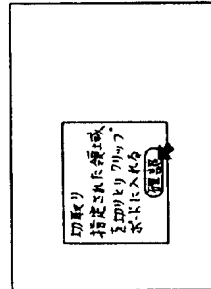 切取り
指定された領域
を切りとりクリップ
ボードに入れる
確認